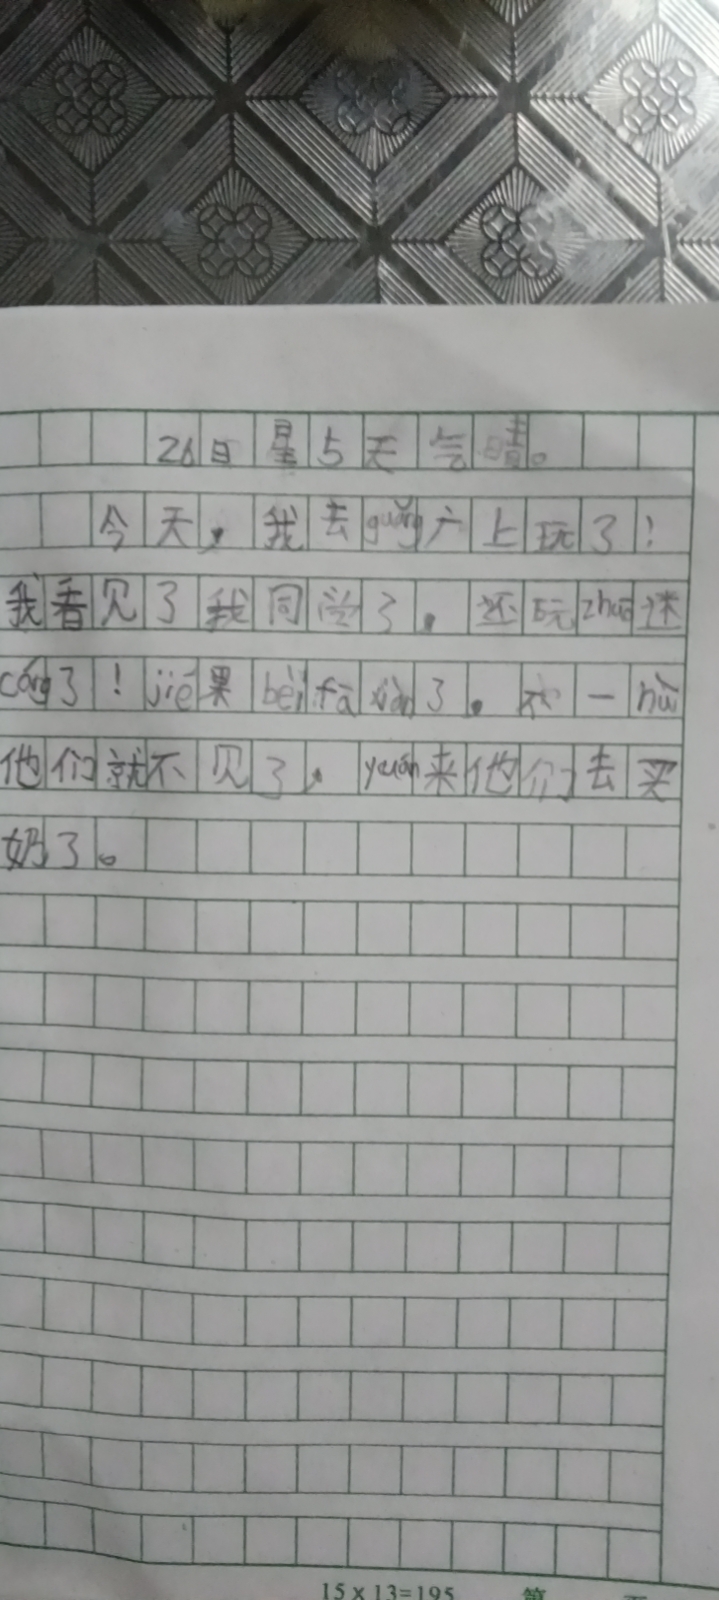 26日 星5天气晴。
今天，我去guǎng广上玩了！
我看见了我同学了。还玩zhuō迷
cáng了！jié果bèi fā xiàn了。我一nǔ
他们就不见了，yuán来他们去买
奶了。
15×13=195 第 页